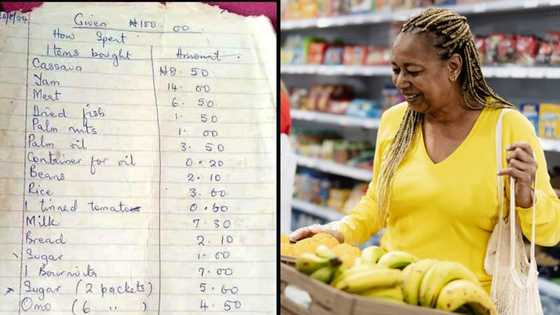 Given ₦100 00
How Spent
Items bought Amount
Cassava ₦8. 50
Yam 14. 00
Meat 6. 50
Dried fish 1. 50
Palm nuts 1. 00
Palm oil 3. 50
Container for oil 0. 20
Beans 2. 10
Rice 3. 60
1 tinned tomatoe 0. 60
Milk 7. 30
Bread 2. 10
Sugar 1. 00
1 Bournvita 7. 00
Sugar (2 packets) 5. 60
Omo (6 " ) 4. 50